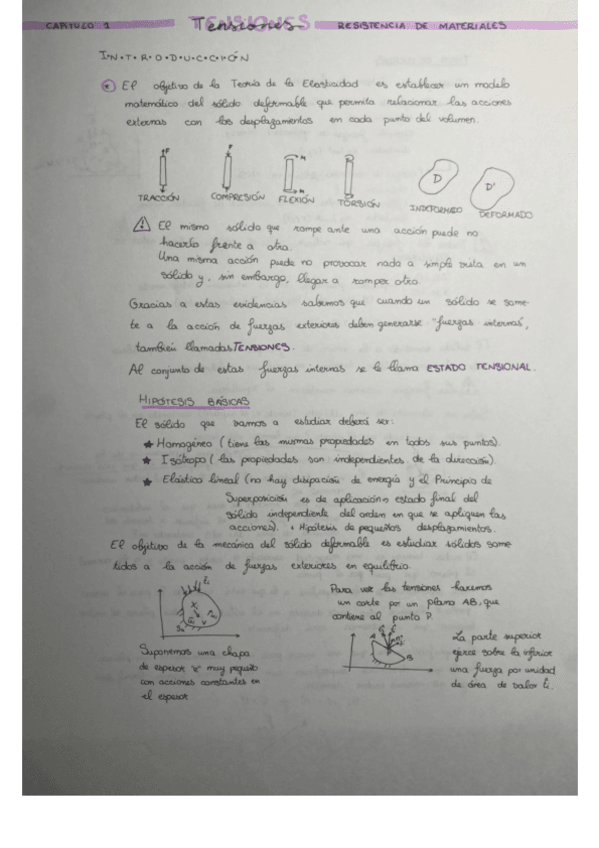 CAPÍTULO 1 TENSIONES Tensiones RESISTENCIA DE MATERIALES
IN·T·R·O·D·U·C·C·IÓN
El objetivo de la Teoría de la Elasticidad es establecer un modelo
matemático del sólido deformable que permita relacionar las acciones
externas con los desplazamientos en cada punto del volumen.
F F M
D D'
TRACCIÓN COMPRESIÓN FLEXIÓN TORSIÓN INDEFORMADO DEFORMADO
El mismo sólido que rompe ante una acción puede no
hacerlo frente a otra.
Una misma acción puede no provocar nada a simple vista en un
sólido y, sin embargo, llegar a romper otro.
Gracias a estas evidencias sabemos que cuando un sólido se some-
te a la acción de fuerzas exteriores deben generarse "fuerzas internas",
también llamadas TENSIONES.
Al conjunto de estas fuerzas internas se le llama ESTADO TENSIONAL.
HIPÓTESIS BÁSICAS
El sólido que vamos a estudiar deberá ser:
★ Homogéneo (tiene las mismas propiedades en todos sus puntos).
★ Isótropo (las propiedades son independientes de la dirección).
★ Elástico lineal (no hay disipación de energía y el Principio de
Superposición es de aplicación, estado final del
sólido independiente del orden en que se apliquen las
acciones). + Hipótesis de pequeños desplazamientos.
El objetivo de la mecánica del sólido deformable es estudiar sólidos some-
tidos a la acción de fuerzas exteriores en equilibrio.
Para ver las tensiones haremos
un corte por un plano AB, que
contiene al punto P.
Suponemos una chapa
de espesor "e" muy pequeño
con acciones constantes en
el espesor
A P B
La parte superior
ejerce sobre la inferior
una fuerza por unidad
de área de valor